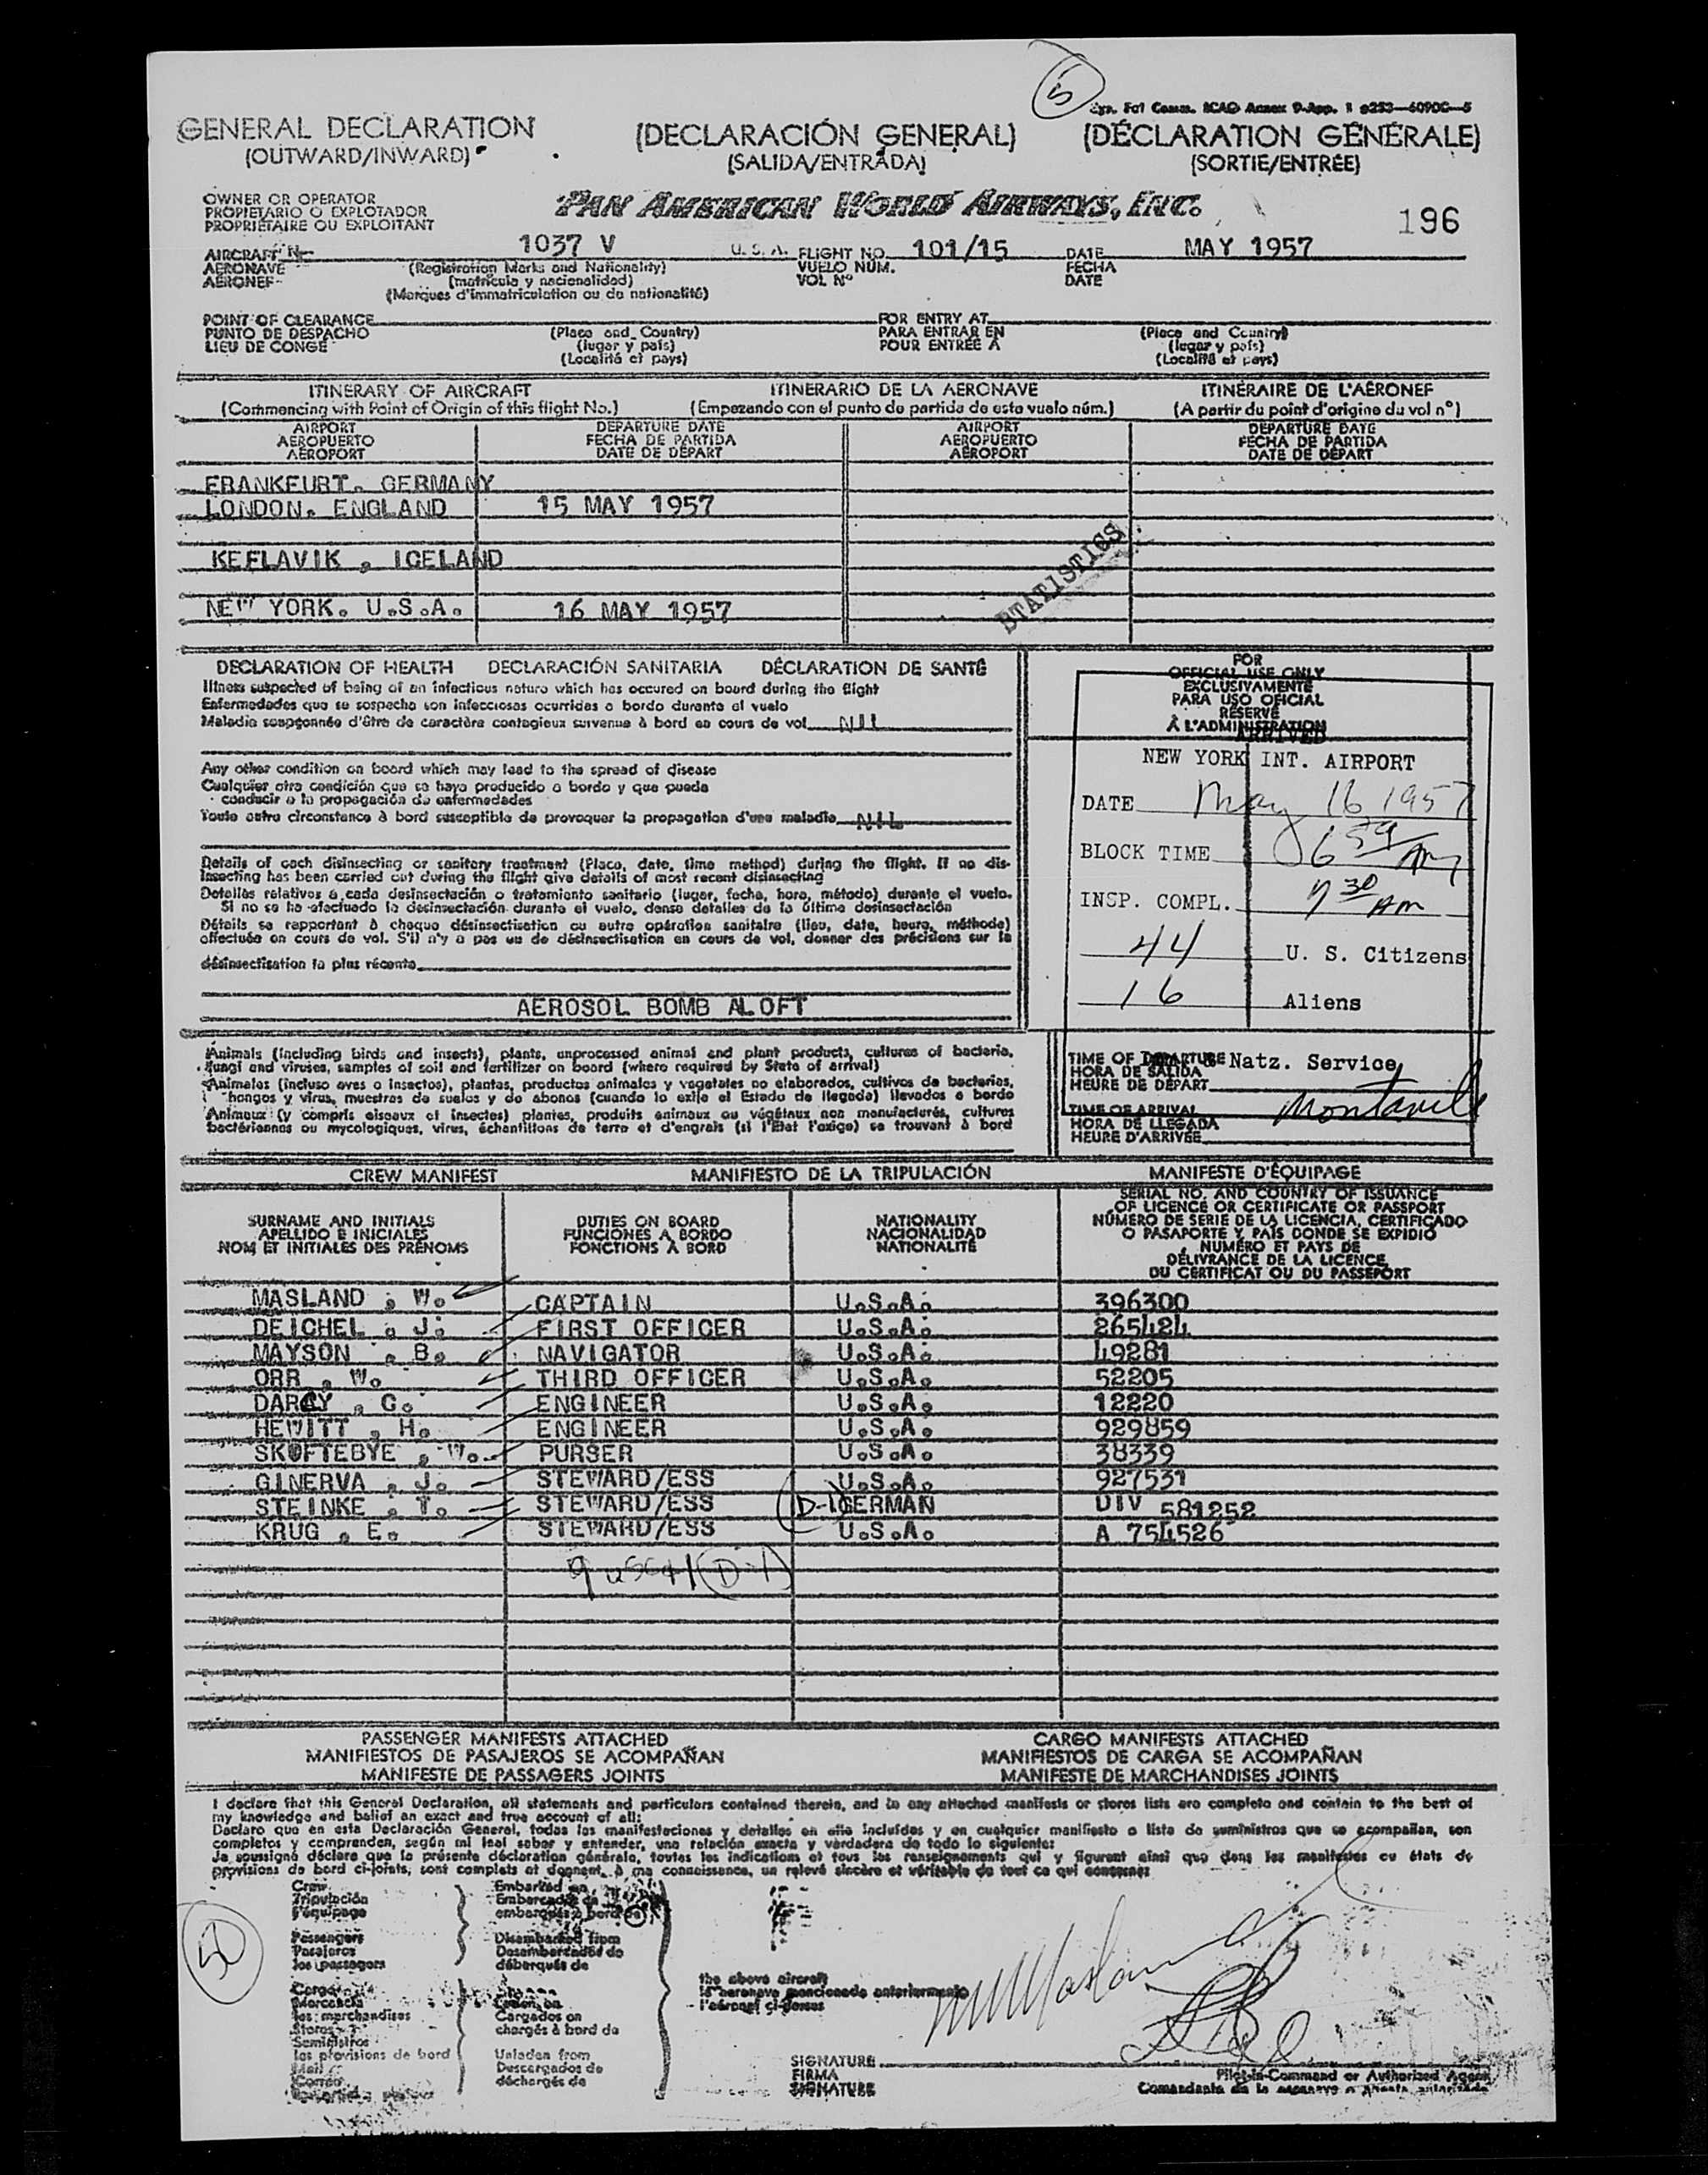 5
GENERAL DECLARATION
(OUTWARD/INWARD)
(DECLARACIÓN GENERAL)
(SALIDA/ENTRADA)
(DÉCLARATION GÉNÉRALE)
(SORTIE/ENTRÉE)
OWNER OR OPERATOR
PROPIETARIO O EXPLOTADOR
PROPRIÉTAIRE OU EXPLOITANT
PAN AMERICAN WORLD AIRWAYS, INC.
196
AIRCRAFT N 1037 V U.S.A. FLIGHT NO. 101/15 DATE MAY 1957
AERONAVE (Registration Marks and Nationality) VUELO NÚM. FECHA
AÉRONEF (matrícula y nacionalidad) VOL Nº DATE
(Marques d'immatriculation ou de nationalité)
POINT OF CLEARANCE FOR ENTRY AT
PUNTO DE DESPACHO (Place and Country) PARA ENTRAR EN (Place and Country)
LIEU DE CONGÉ (lugar y país) POUR ENTRÉE À (lugar y país)
(Localité et pays) (Localité et pays)
ITINERARY OF AIRCRAFT ITINERARIO DE LA AERONAVE ITINÉRAIRE DE L'AÉRONEF
(Commencing with Point of Origin of this flight No.) (Empezando con el punto de partida de este vuelo núm.) (A partir du point d'origine du vol nº)
AIRPORT DEPARTURE DATE AIRPORT DEPARTURE DATE
AEROPUERTO FECHA DE PARTIDA AEROPUERTO FECHA DE PARTIDA
AÉROPORT DATE DE DÉPART AÉROPORT DATE DE DÉPART
FRANKFURT. GERMANY
LONDON. ENGLAND 15 MAY 1957
KEFLAVIK , ICELAND
NEW YORK. U.S.A. 16 MAY 1957
STATISTICS
DECLARATION OF HEALTH DECLARACIÓN SANITARIA DÉCLARATION DE SANTÉ
Illness suspected of being of an infectious nature which has occured on board during the flight
Enfermedades que se sospecha son infecciosas ocurridas a bordo durante el vuelo
Maladie soupçonnée d'être de caractère contagieux survenue à bord en cours de vol NIL
Any other condition on board which may lead to the spread of disease
Cualquier otra condición que se haya producido a bordo y que pueda
conducir a la propagación de enfermedades
Toute autre circonstance à bord susceptible de provoquer la propagation d'une maladie NIL
Details of each disinsecting or sanitary treatment (Place, date, time method) during the flight. If no dis-
insecting has been carried out during the flight give details of most recent disinsecting
Detalles relativos a cada desinsectación o tratamiento sanitario (lugar, fecha, hora, método) durante el vuelo.
Si no se ha efectuado la desinsectación durante el vuelo, dense detalles de la última desinsectación
Détails se rapportant à chaque désinsectisation ou autre opération sanitaire (lieu, date, heure, méthode)
effectuée en cours de vol. S'il n'y a pas eu de désinsectisation en cours de vol, donner des précisions sur la
désinsectisation la plus récente
AEROSOL BOMB ALOFT
FOR
OFFICIAL USE ONLY
EXCLUSIVAMENTE
PARA USO OFICIAL
RÉSERVÉ
À L'ADMINISTRATION
ARRIVED
NEW YORK INT. AIRPORT
DATE May 16 1957
BLOCK TIME 6 59 AM
INSP. COMPL. 7 30 AM
44 U. S. Citizens
16 Aliens
Animals (including birds and insects), plants, unprocessed animal and plant products, cultures of bacteria,
fungi and viruses, samples of soil and fertilizer on board (where required by State of arrival)
Animales (incluso aves o insectos), plantas, productos animales y vegetales no elaborados, cultivos de bacterias,
hongos y virus, muestras de suelos y de abonos (cuando lo exija el Estado de llegada) llevados a bordo
Animaux (y compris oiseaux et insectes) plantes, produits animaux ou végétaux non manufacturés, cultures
bactériennes ou mycologiques, virus, échantillons de terre et d'engrais (si l'État l'exige) se trouvant à bord
TIME OF DEPARTURE Natz. Service
HORA DE SALIDA
HEURE DE DÉPART
TIME OF ARRIVAL
HORA DE LLEGADA
HEURE D'ARRIVÉE
CREW MANIFEST MANIFIESTO DE LA TRIPULACIÓN MANIFESTE D'ÉQUIPAGE
SURNAME AND INITIALS
APELLIDO E INICIALES
NOM ET INITIALES DES PRÉNOMS
DUTIES ON BOARD
FUNCIONES A BORDO
FONCTIONS À BORD
NATIONALITY
NACIONALIDAD
NATIONALITÉ
SERIAL NO. AND COUNTRY OF ISSUANCE
OF LICENCE OR CERTIFICATE OR PASSPORT
NÚMERO DE SERIE DE LA LICENCIA, CERTIFICADO
O PASAPORTE Y PAÍS DONDE SE EXPIDIÓ
NUMÉRO ET PAYS DE
DÉLIVRANCE DE LA LICENCE,
DU CERTIFICAT OU DU PASSEPORT
MASLAND , W. CAPTAIN U.S.A. 396300
DEICHEL , J. FIRST OFFICER U.S.A. 265424
MAYSON , B. NAVIGATOR U.S.A. 49281
ORR , W. THIRD OFFICER U.S.A. 52205
DARCY , C. ENGINEER U.S.A. 12220
HEWITT , H. ENGINEER U.S.A. 929859
SKOFTEBYE , W. PURSER U.S.A. 38339
GINERVA , J. STEWARD/ESS U.S.A. 927531
STEINKE , T. STEWARD/ESS (D-1) GERMAN DIV 581252
KRUG , E. STEWARD/ESS U.S.A. A 754526
9 USC + 1 (D-1)
PASSENGER MANIFESTS ATTACHED CARGO MANIFESTS ATTACHED
MANIFIESTOS DE PASAJEROS SE ACOMPAÑAN MANIFIESTOS DE CARGA SE ACOMPAÑAN
MANIFESTE DE PASSAGERS JOINTS MANIFESTE DE MARCHANDISES JOINTS
I declare that this General Declaration, all statements and particulars contained therein, and in any attached manifests or stores lists are complete and contain to the best of
my knowledge and belief an exact and true account of all:
Declaro que en esta Declaración General, todas las manifestaciones y detalles en ella incluídos y en cualquier manifiesto o lista de suministros que se acompañan, son
completos y comprenden, según mi leal saber y entender, una relación exacta y verdadera de todo lo siguiente:
Je soussigné déclare que la présente déclaration générale, toutes les indications et tous les renseignements qui y figurent ainsi que dans les manifestes ou états de
provisions de bord ci-joints, sont complets et donnent, à ma connaissance, un relevé sincère et véritable de tout ce qui concerne:
Crew
Tripulación
l'équipage
Passengers
Pasajeros
les passagers
Cargo
Mercancía
les marchandises
Stores
Suministros
les provisions de bord
Mail
Correo
Embarked on
Embarcados en
embarqués à bord de
Disembarked from
Desembarcados de
débarqués de
Cargados en
chargés à bord de
Unladen from
Descargados de
déchargés de
the above aircraft
la aeronave mencionada anteriormente
l'aéronef ci-dessus
50
SIGNATURE
FIRMA
SIGNATURE
Pilot-in-Command or Authorized Agent
Comandante de la aeronave o Agente autorizado